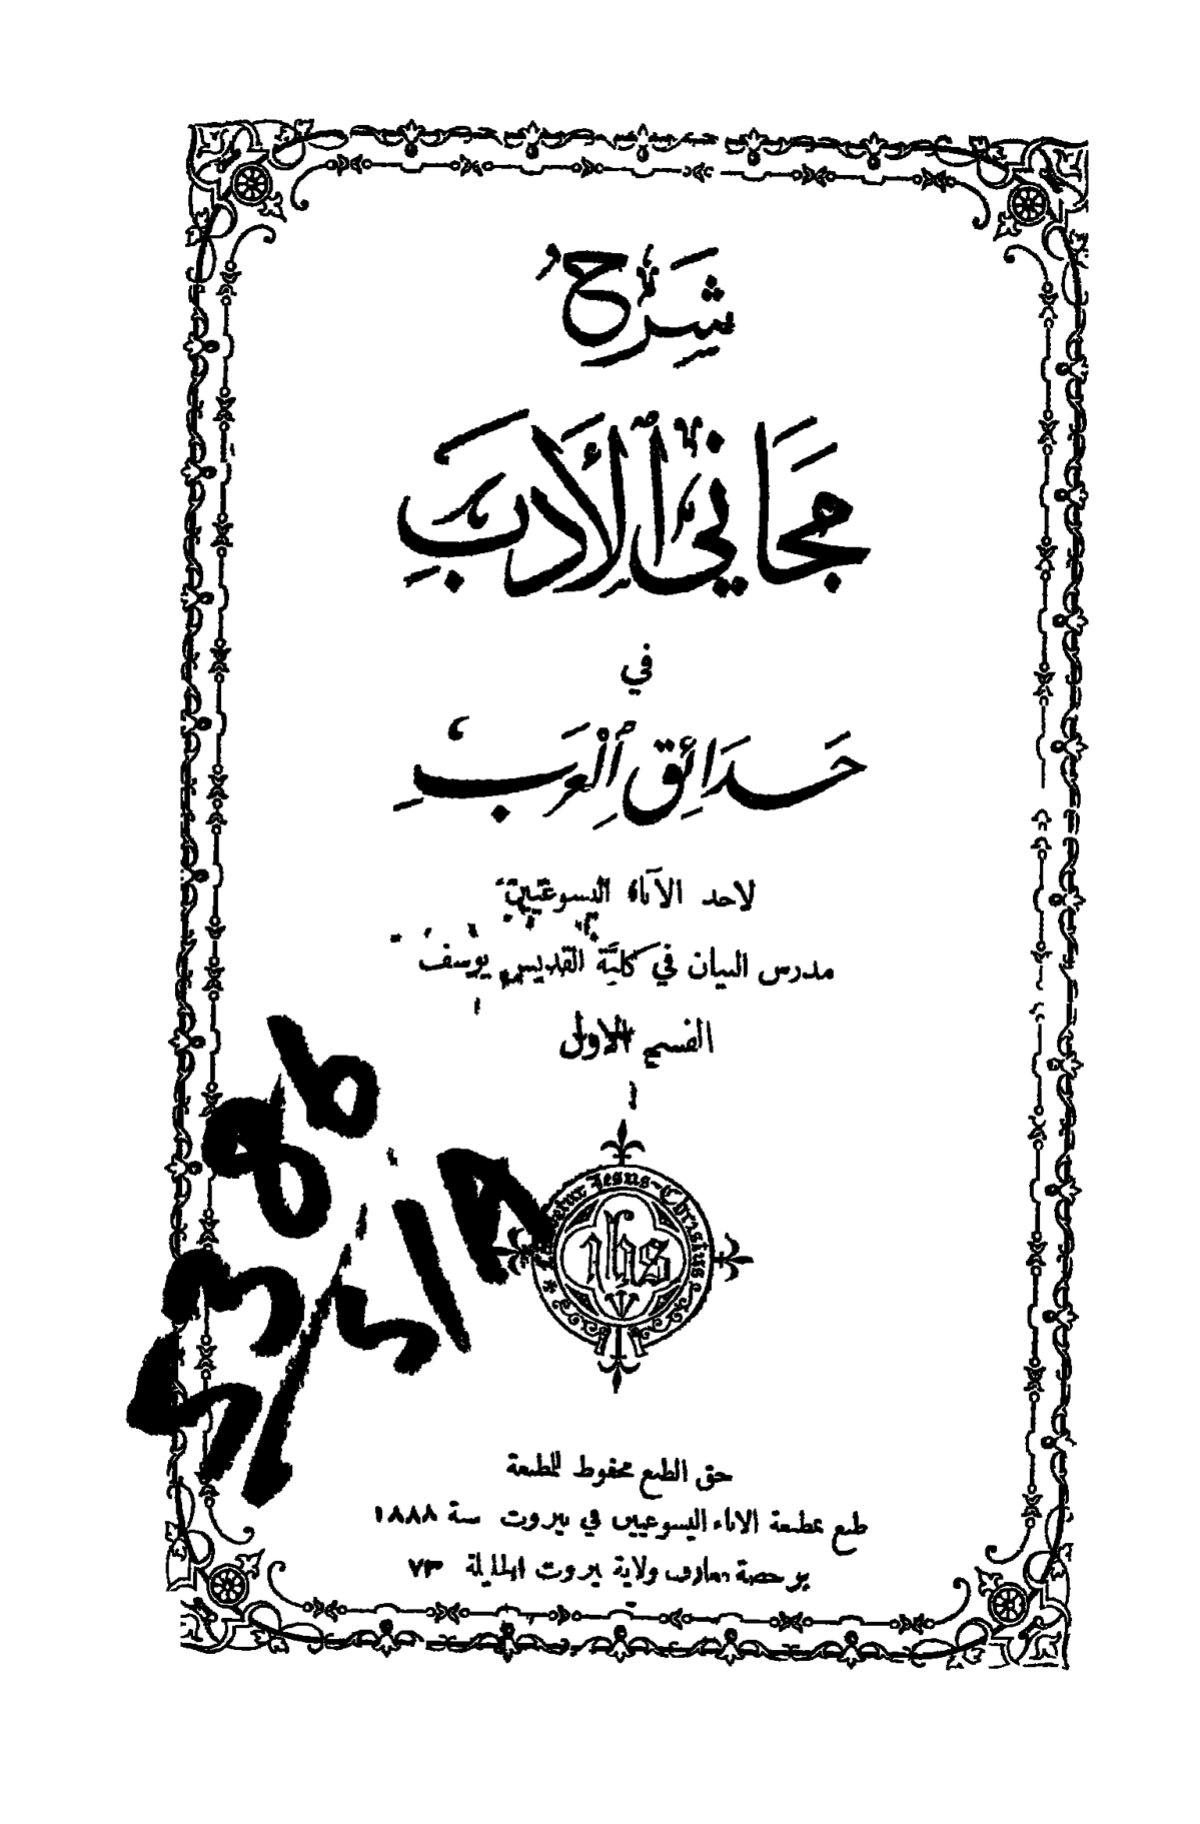 شَرْحُ
مَجَانِي ٱلْأَدَبِ
في
حَدَائِقِ ٱلْعَرَبِ
لاحد الآباء اليسوعيين
مدرس البيان في كلية القديس يوسف
القسم الاول
Jesus-Christus
ihs
حق الطبع محفوظ للمطبعة
طبع بمطبعة الاباء اليسوعيين في بيروت سنة ١٨٨٨
برخصة معارف ولاية بيروت الجليلة ٧٣